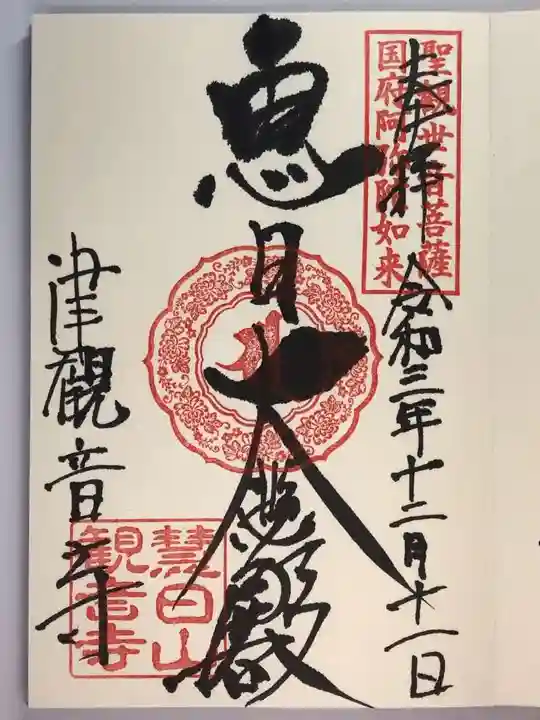 奉拝 令和三年十二月十一日
聖観世音菩薩
国府阿弥陀如来
恵日大慈殿
津観音寺
慧日山
観音寺